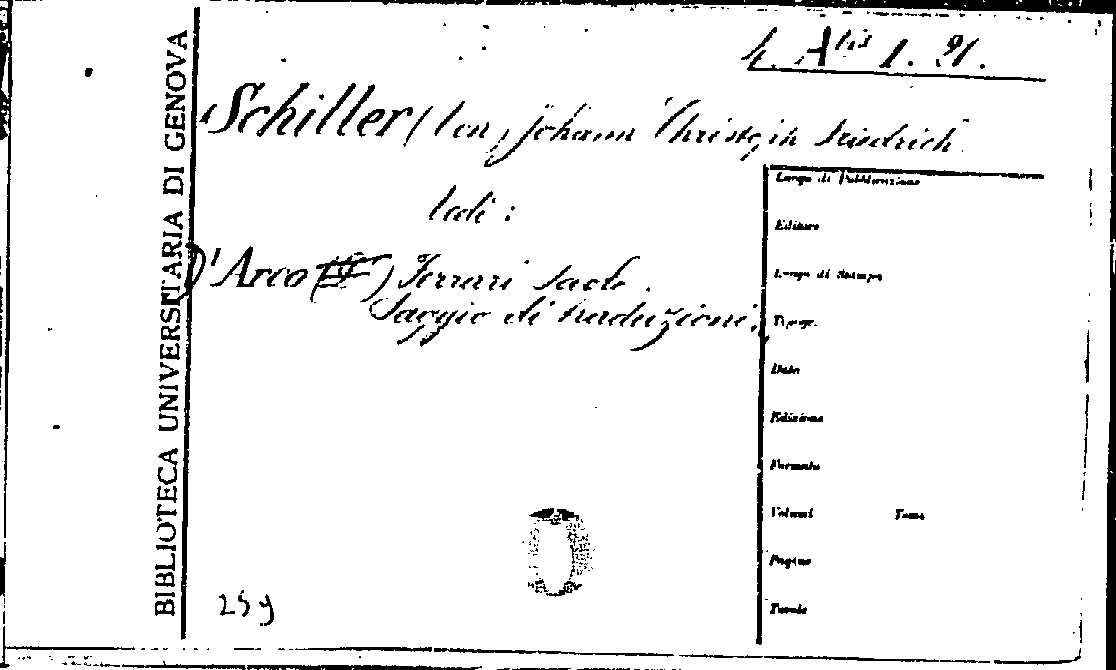 BIBLIOTECA UNIVERSITARIA DI GENOVA
Schiller (von) Johann Christoph Friedrich
Vedi:
D'Arco ( ) Ferrari Paolo.
Saggio di traduzioni.
Luogo di Pubblicazione
Editore
Luogo di Stampa
Tipogr.
Data
Edizione
Formato
Volumi Tomo
Pagine
Tavole